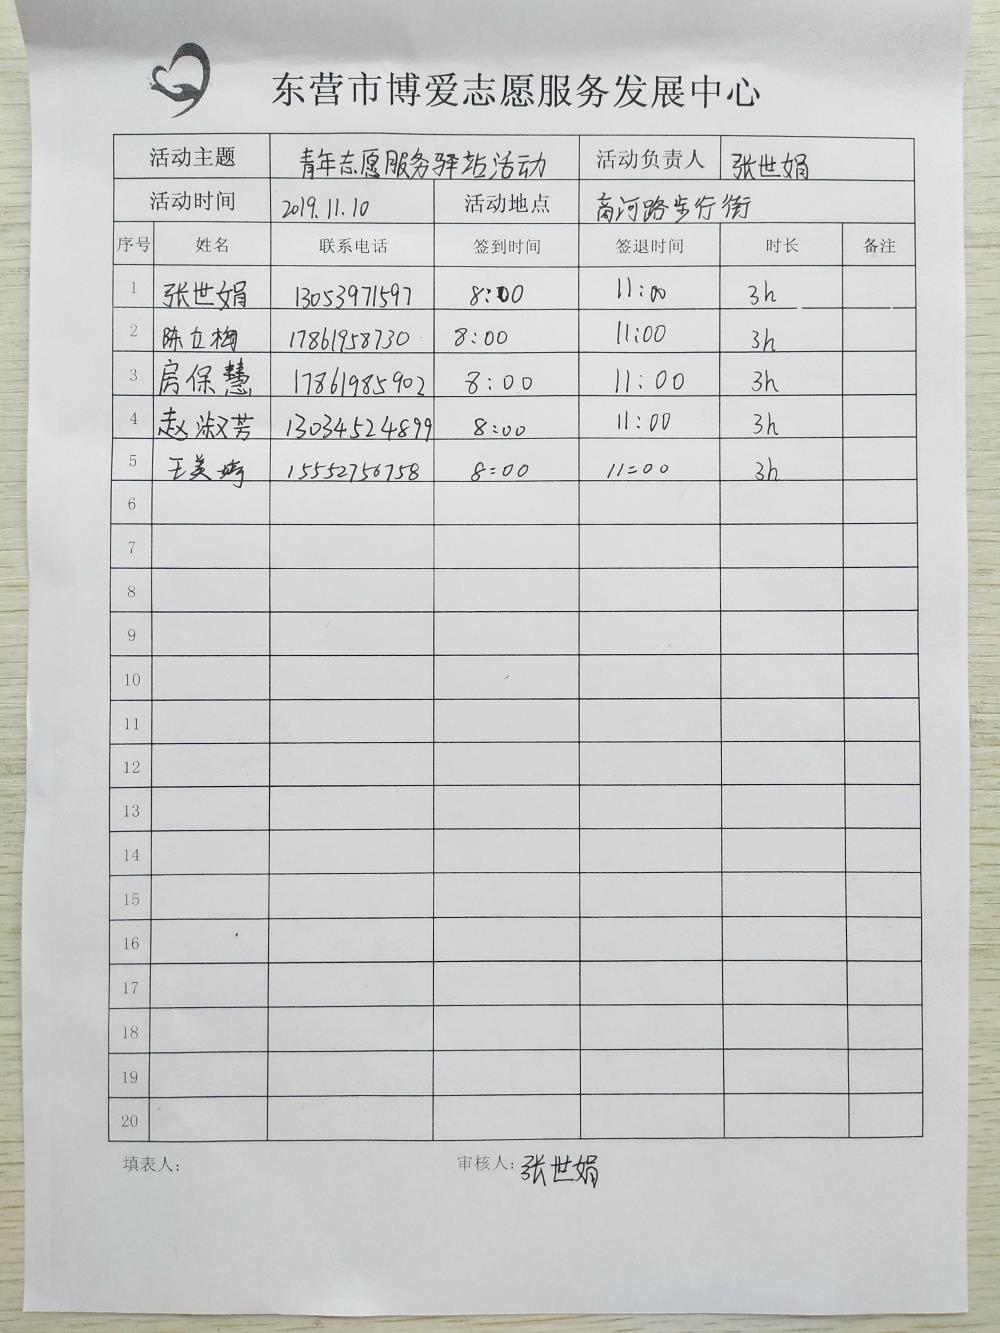 东营市博爱志愿服务发展中心
活动主题 青年志愿服务驿站活动 活动负责人 张世娟
活动时间 2019.11.10 活动地点 商河路步行街
序号 姓名 联系电话 签到时间 签退时间 时长 备注
1 张世娟 13053971597 8:00 11:00 3h
2 陈立梅 17861958730 8:00 11:00 3h
3 房保慧 17861985902 8:00 11:00 3h
4 赵淑芳 13034524899 8:00 11:00 3h
5 王美婷 15552756758 8:00 11:00 3h
6
7
8
9
10
11
12
13
14
15
16
17
18
19
20
填表人: 审核人: 张世娟